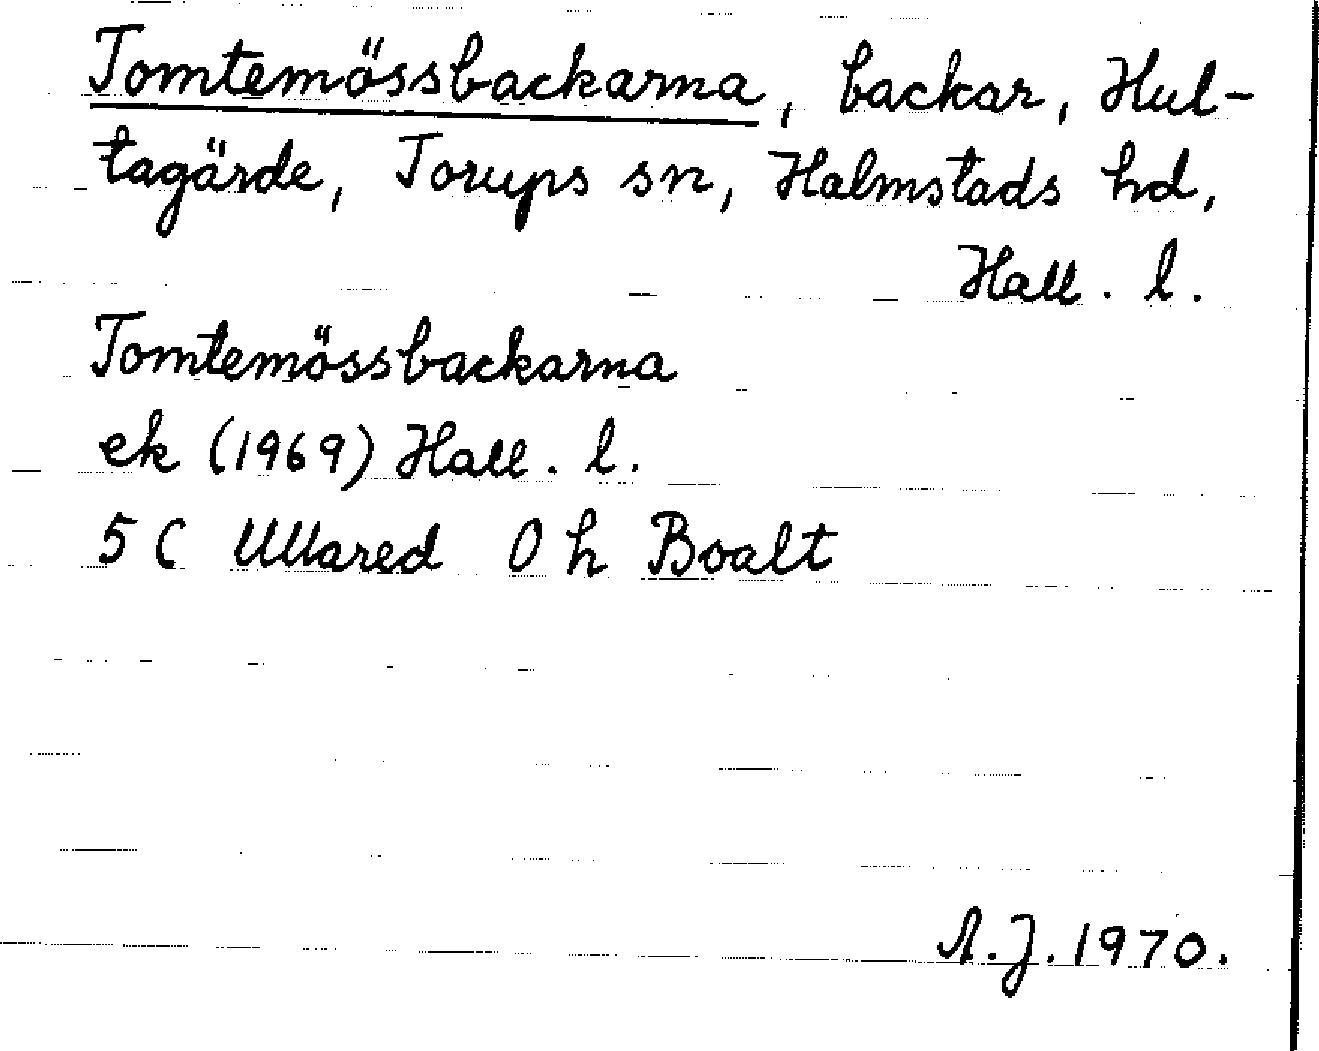 Tomtemössbackarna, backar, Hul-
tagärde, Torups sn, Halmstads hd,
Hall. l.
Tomtemössbackarna
ek (1969) Hall. l.
5 C Ullared 0 h Boalt
A.J. 1970.